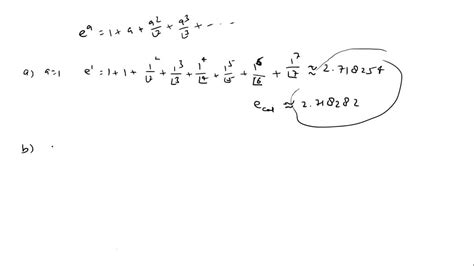 e^a = 1 + a + a²/⌊2 + a³/⌊3 + - - - -
a) a=1 e¹ = 1 + 1 + 1²/⌊2 + 1³/⌊3 + 1⁴/⌊4 + 1⁵/⌊5 + 1⁶/⌊6 + 1⁷/⌊7 ≈ 2.718254
e_cal ≈ 2.718282
b) .